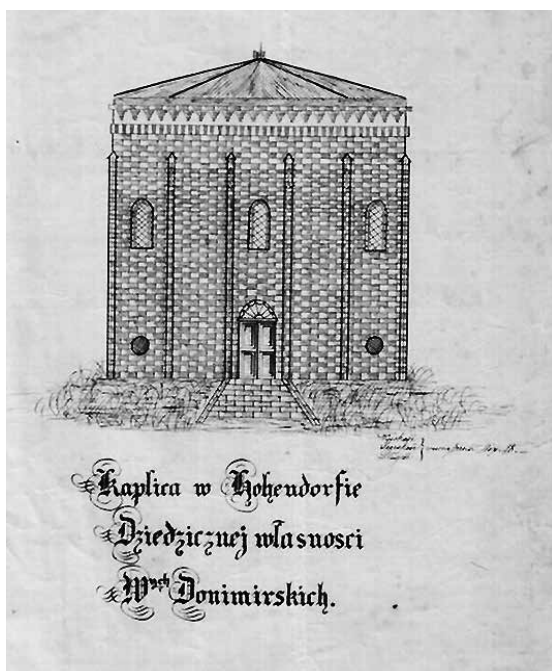 Kaplica w Hohendorfie
Dziedzicznej własnosci
W^nych Donimirskich.